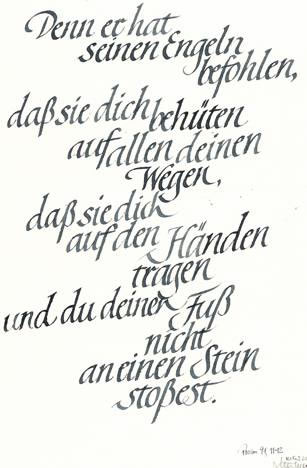 Denn er hat
seinen Engeln
befohlen,
daß sie dich behüten
auf allen deinen
Wegen,
daß sie dich
auf den Händen
tragen
und du deinen Fuß
nicht
an einen Stein
stoßest.
Psalm 91, 11-12